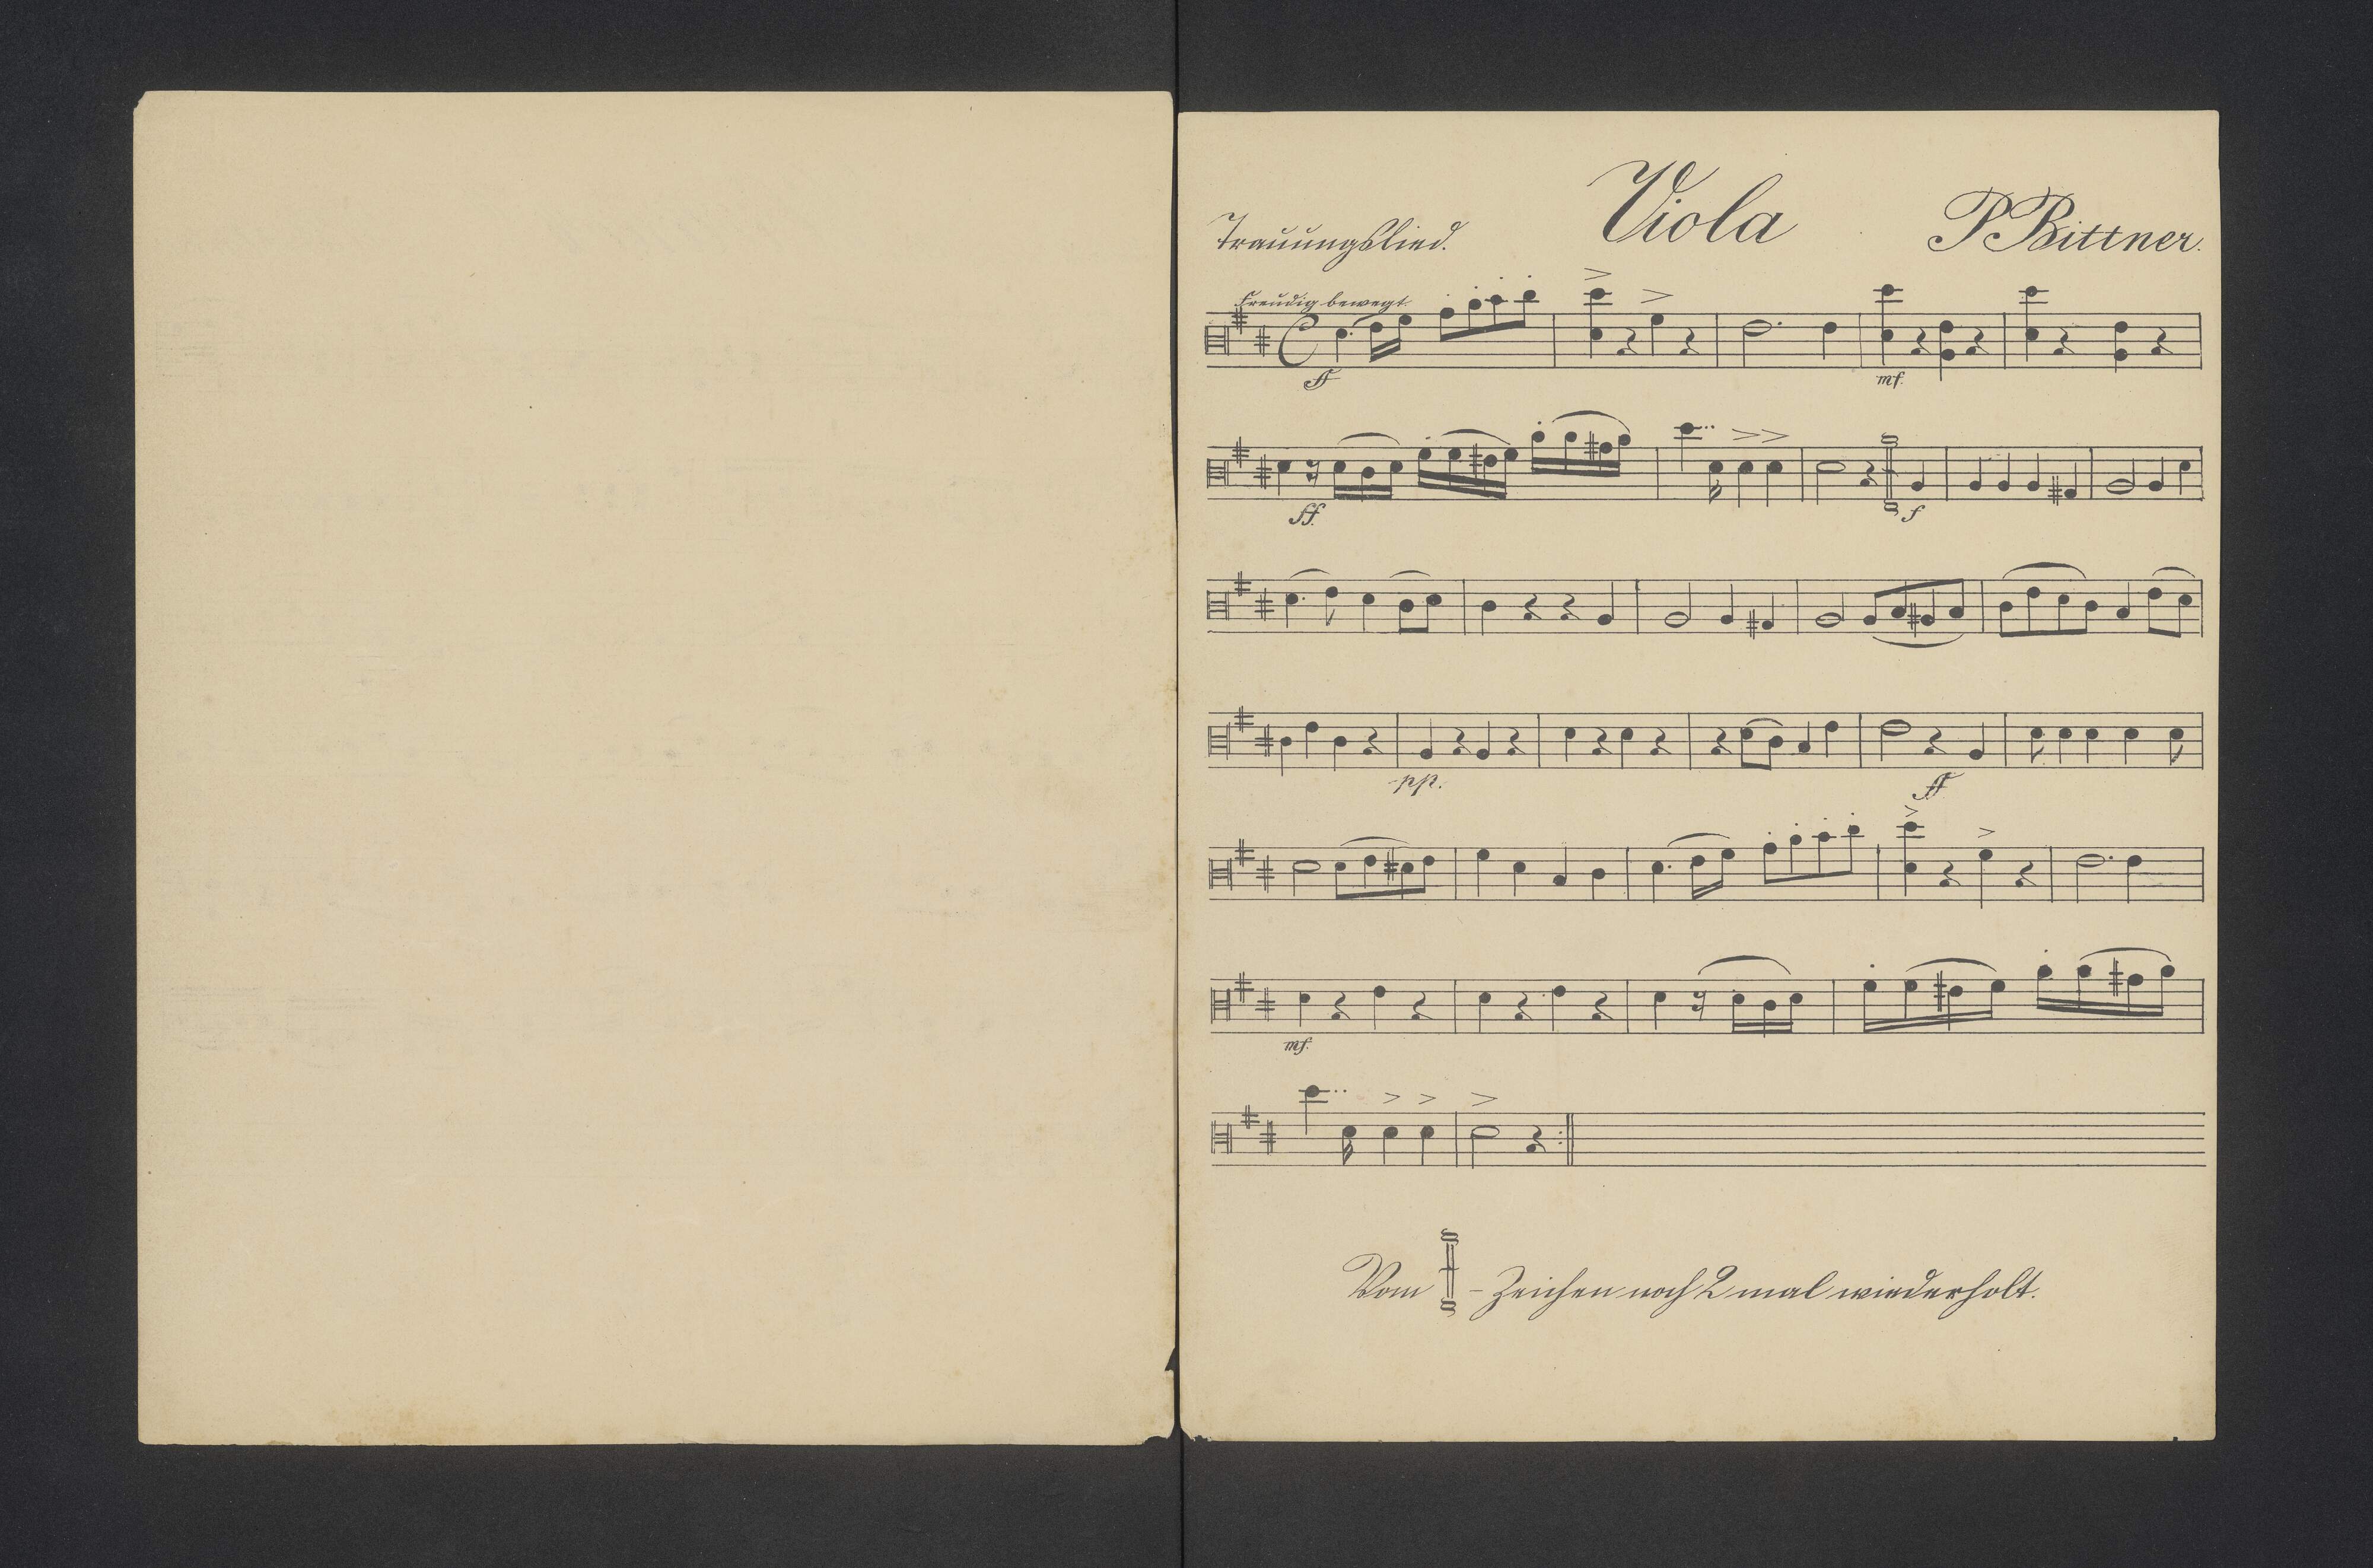 Viola
Trauungslied.
P Bittner.
Freudig bewegt.
ff
mf.
ff.
f
pp.
ff
mf.
Vom - Zeichen noch 2 mal wiederholt.